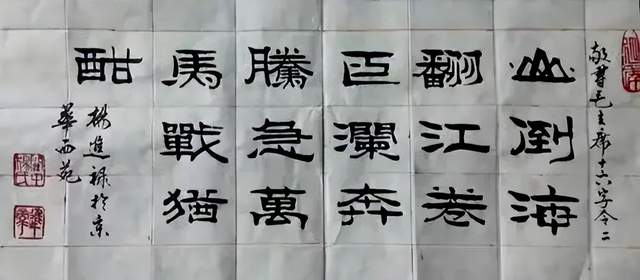 敬書毛主席十六字令二
山倒海
翻江卷
巨瀾奔
騰急萬
馬戰猶
酣
楊進祿於京
華西苑